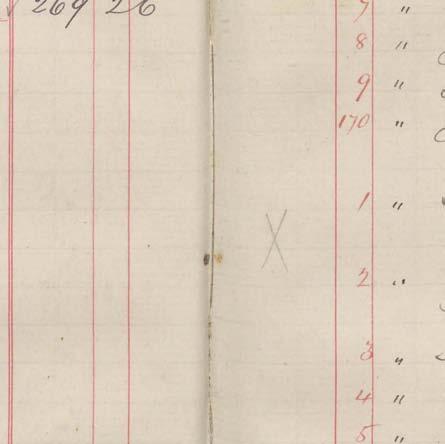 269 26
7 "
8 "
9 "
170 "
1 "
X
2 "
3 "
4 "
5 "